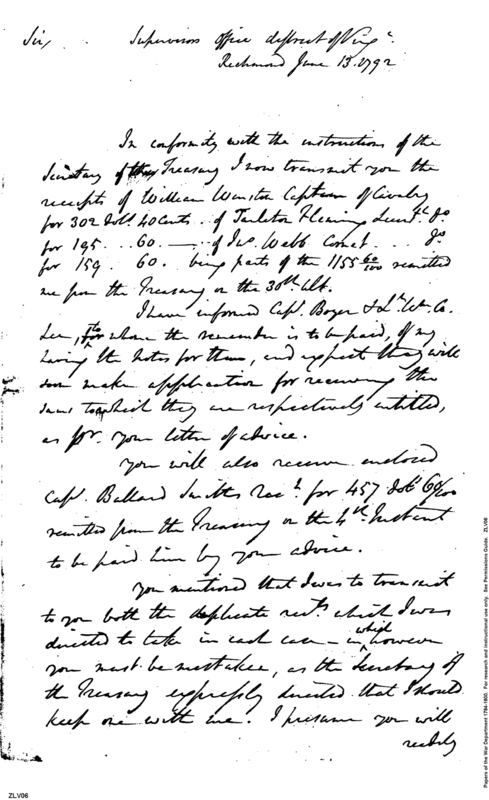 Sir, Supervisors Office district of Virga
Richmond June 13. 1792
In conformity with the instructions of the
Secretary of the Treasury I now transmit you the
receipts of William Winston Captain of Cavalry
for 302 Doll 40 Cents. of Tarleton Fleming Lieut. do
for 195 ... 60. — of Jno. Webb Cornet ... do
for 159. 60. being parts of the 1155 60/100 remitted
me from the Treasury on the 30th Ult.
I have informed Capt. Boyer & Lt. Wm. C.
Lee, to whom the remainder is to be paid, of my
having the notes for them, and expect they will
soon make application for receiving the
sums to which they are respectively entitled,
as pr. your letter of advice.
You will also receive enclosed
Capt. Ballard Smiths Rect. for 457 Dolls 60/100
remitted from the Treasury on the 4th Instant
to be paid him by your advice.
You mentioned that I was to transmit
to you both the duplicate rects. which I was
directed to take in each case – in which however
you must be mistaken, as the Secretary of
the Treasury expressly directed that I should
keep one with me. I presume you will
readily
ZLV06
Papers of the War Department 1784-1800. For research and instructional use only. See Permissions Guide. ZLV06